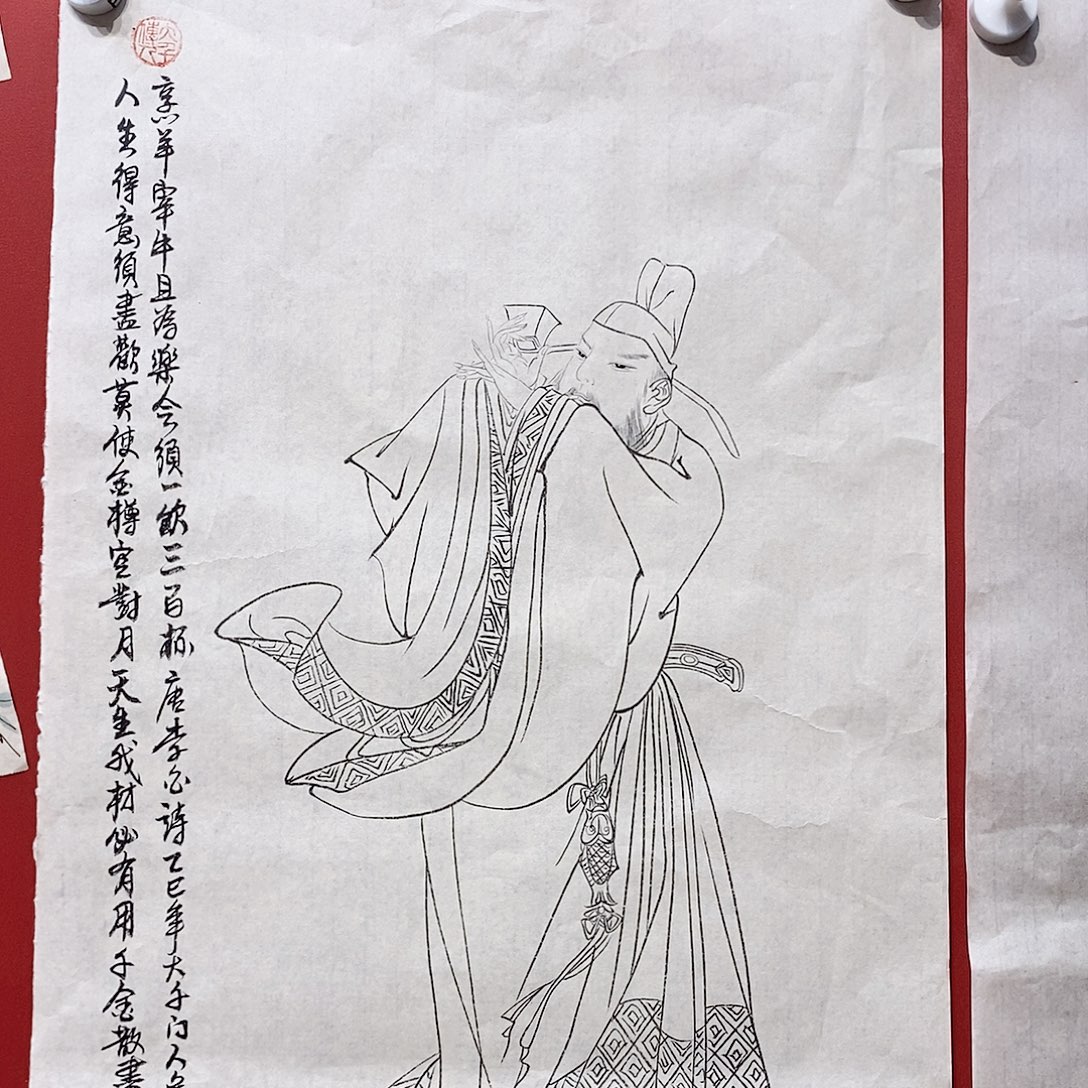 大千傳人
人生得意須盡歡莫使金樽空對月天生我材必有用千金散盡
烹羊宰牛且為樂会須一飲三百杯唐李白詩乙巳年大千门人